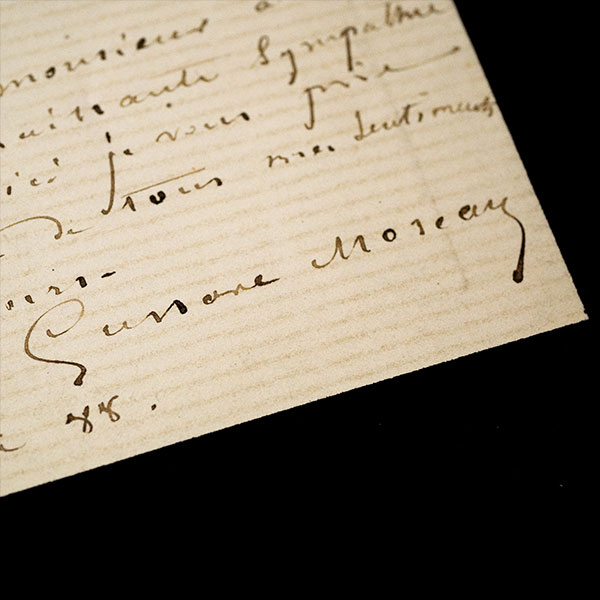 monsieur
Sympathie
je vous prie
de tous mes Sentiments
Gustave Moreau
88.